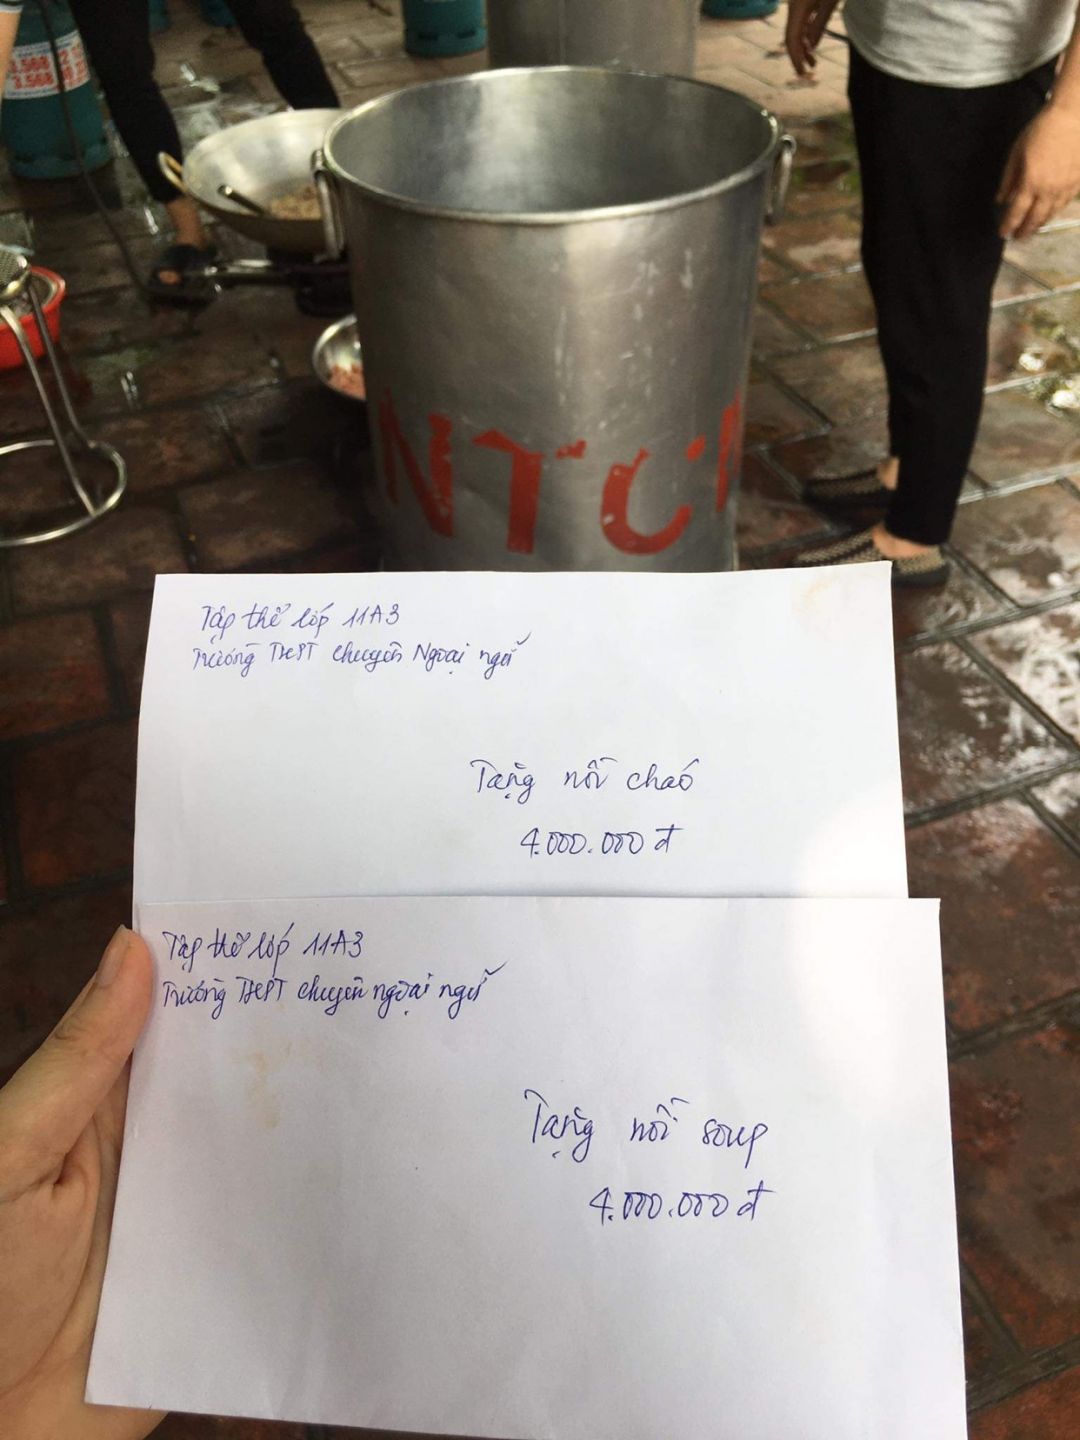 3.568
3.568
NTC
Tập thể lớp 11A3
Trường THPT chuyên Ngoại ngữ
Tặng nồi cháo
4.000.000 đ
Tập thể lớp 11A3
Trường THPT chuyên ngoại ngữ
Tặng nồi soup
4.000.000 đ